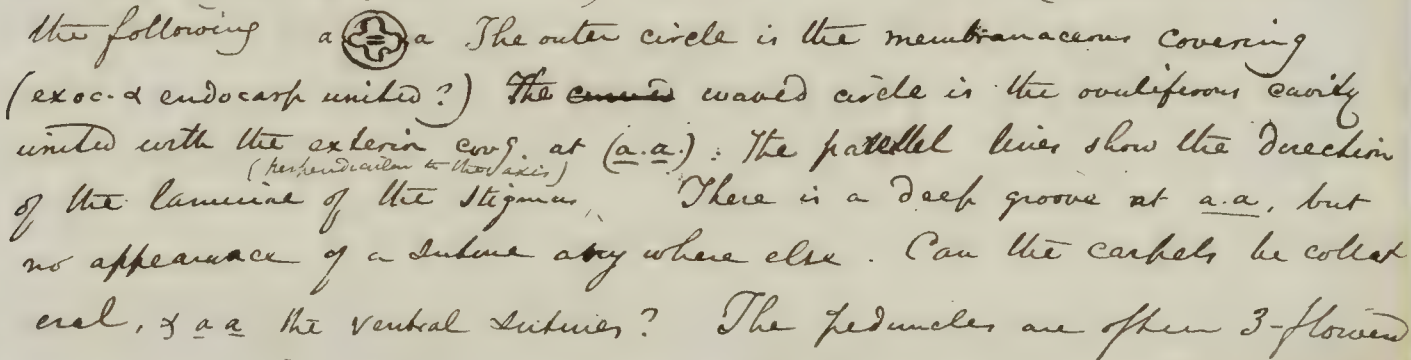 the following a a The outer circle is the membranaceous covering
(exoc. & endocarp united?) The curved waved circle is the ovuliferous cavity
united with the exterior covg. at (a.a.): The parellel lines show the direction
(perpendicular to the axis)
of the laminae of the stigmas. There is a deep groove at a.a, but
no appearance of a suture any where else. Can the carpels be collat
eral, & a a the ventral sutures? The peduncles are often 3-flowered